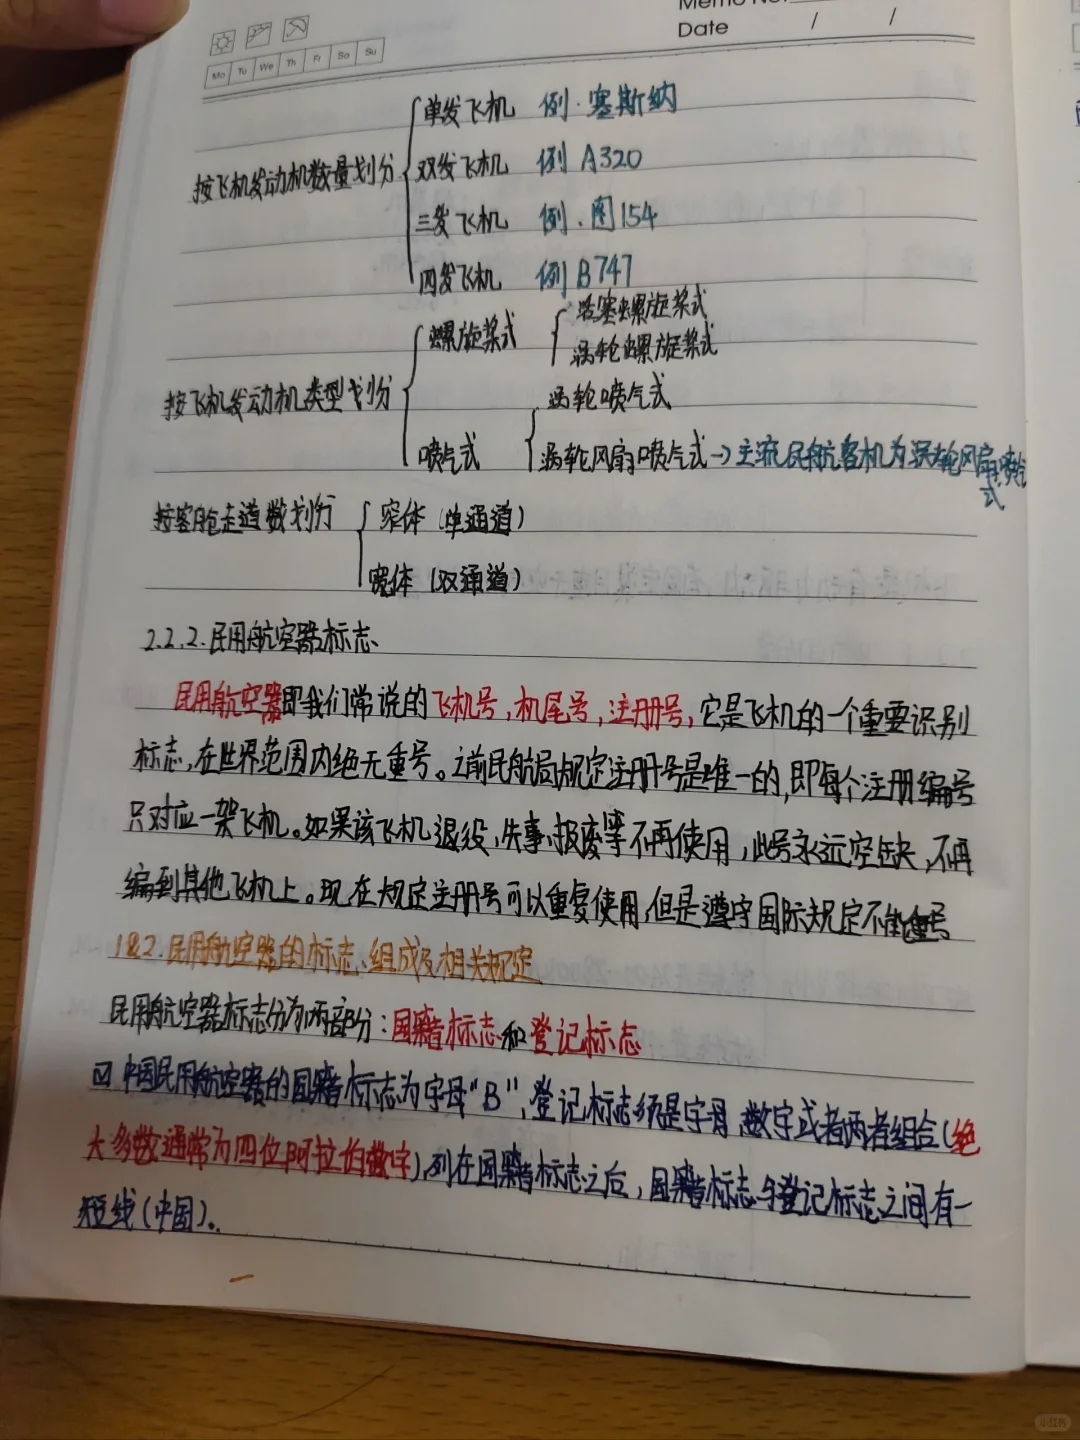 Memo No.
Date / /
Mo Tu We Th Fr Sa Su
按飞机发动机数量划分
单发飞机 例·塞斯纳
双发飞机 例 A320
三发飞机 例·图154
四发飞机 例 B747
按飞机发动机类型划分
螺旋桨式
活塞螺旋桨式
涡轮螺旋桨式
喷气式
涡轮喷气式
涡轮风扇喷气式→主流民航客机为涡轮风扇喷气式
按客舱走道数划分
窄体(单通道)
宽体(双通道)
2.2.2.民用航空器标志
民用航空器即我们常说的飞机号,机尾号,注册号,它是飞机的一个重要识别
标志,在世界范围内绝无重号。之前民航局规定注册号是唯一的,即每个注册编号
只对应一架飞机。如果该飞机退役,失事、报废等不再使用,此号永远空缺,不再
编到其他飞机上。现在规定注册号可以重复使用,但是遵守国际规定不能重号
1.民用航空器的标志、组成及相关规定
民用航空器标志分为两部分:国籍标志和登记标志
中国民用航空器的国籍标志为字母“B”,登记标志须是字母、数字或者两者组合(绝
大多数通常为四位阿拉伯数字),列在国籍标志之后,国籍标志与登记标志之间有一
短线(中国)。
小红书